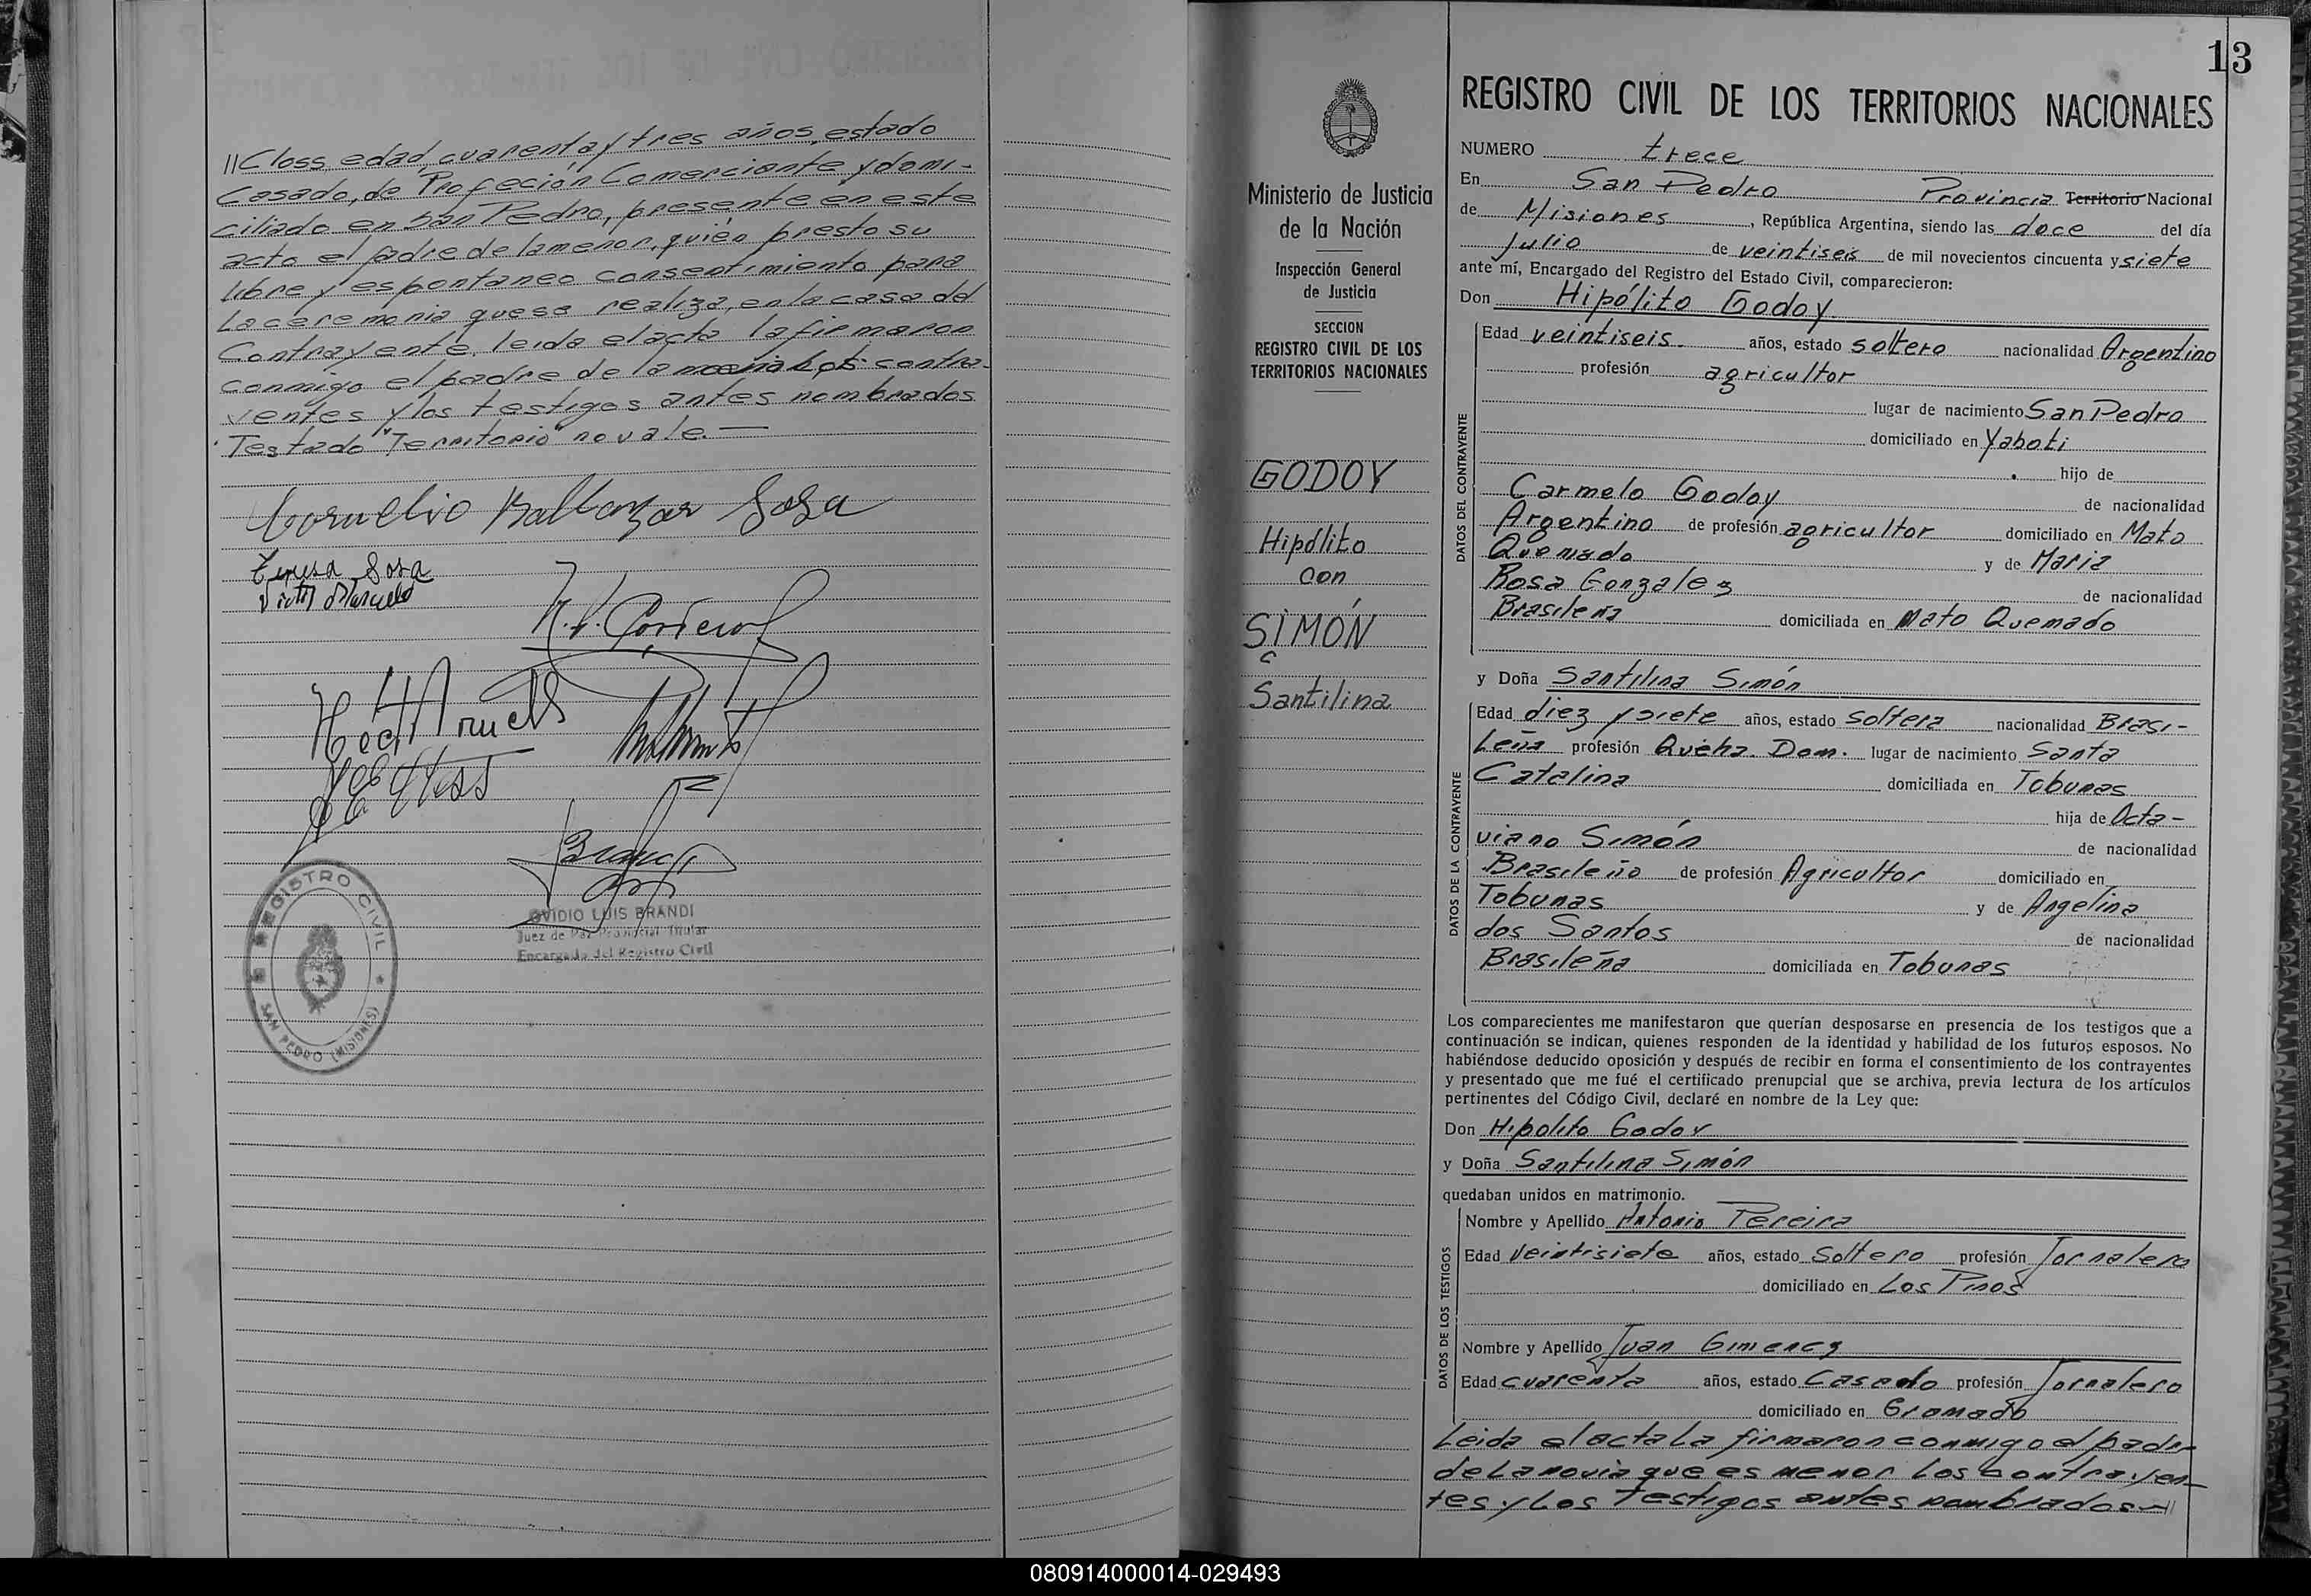 //Closs, edad, cuarenta y tres años, estado
Casado, de Profeción Comerciante y domi-
ciliado en San Pedro, presente en este
acto el padre de la menor, quién presto su
libre y espontaneo consentimiento para
La ceremonia que se realiza, en la casa del
Contrayente. leida el acta la firmaron
conmigo el padre de la los contra-
yentes y los testigos antes nombrados
Testado "Territorio" no vale.—
Cornelio Baltazar Sosa
Teresa Sosa
REGISTRO CIVIL
SAN PEDRO (MISIONES)
OVIDIO LUIS BRANDI
Juez de Paz Provincial Titular
Encargado del Registro Civil
13
Ministerio de Justicia
de la Nación
Inspección General
de Justicia
SECCION
REGISTRO CIVIL DE LOS
TERRITORIOS NACIONALES
GODOY
Hipólito
con
SIMÓN
Santilina
REGISTRO CIVIL DE LOS TERRITORIOS NACIONALES
NUMERO trece
En San Pedro Provincia Territorio Nacional
de Misiones, República Argentina, siendo las doce del día
Julio de veintiseis de mil novecientos cincuenta y siete
ante mí, Encargado del Registro del Estado Civil, comparecieron:
Don Hipólito Godoy
DATOS DEL CONTRAYENTE
Edad veintiseis años, estado soltero nacionalidad Argentino
profesión agricultor
lugar de nacimiento San Pedro
domiciliado en Yaboti
hijo de
Carmelo Godoy de nacionalidad
Argentino de profesión agricultor domiciliado en Mato
Quemado y de Maria
Rosa Gonzalez de nacionalidad
Brasileña domiciliada en Mato Quemado
y Doña Santilina Simón
DATOS DE LA CONTRAYENTE
Edad diez y siete años, estado soltera nacionalidad Brasi-
Leña profesión Queha. Dom. lugar de nacimiento Santa
Catalina domiciliada en Tobunas
hija de Octa-
viano Simón de nacionalidad
Brasileño de profesión Agricultor domiciliado en
Tobunas y de Angelina
dos Santos de nacionalidad
Brasileña domiciliada en Tobunas
Los comparecientes me manifestaron que querían desposarse en presencia de los testigos que a
continuación se indican, quienes responden de la identidad y habilidad de los futuros esposos. No
habiéndose deducido oposición y después de recibir en forma el consentimiento de los contrayentes
y presentado que me fué el certificado prenupcial que se archiva, previa lectura de los artículos
pertinentes del Código Civil, declaré en nombre de la Ley que:
Don Hipolito Godoy
y Doña Santilina Simón
quedaban unidos en matrimonio.
DATOS DE LOS TESTIGOS
Nombre y Apellido Antonio Pereira
Edad Veintisiete años, estado Soltero profesión Jornalero
domiciliado en Los Pinos
Nombre y Apellido Juan Gimenez
Edad cuarenta años, estado Casado profesión Jornalero
domiciliado en Gramado
Leida el acta La firmaron conmigo el padre
de La novia que es menor los contrayen-
tes y Los Testigos antes nombrados—//
080914000014-029493